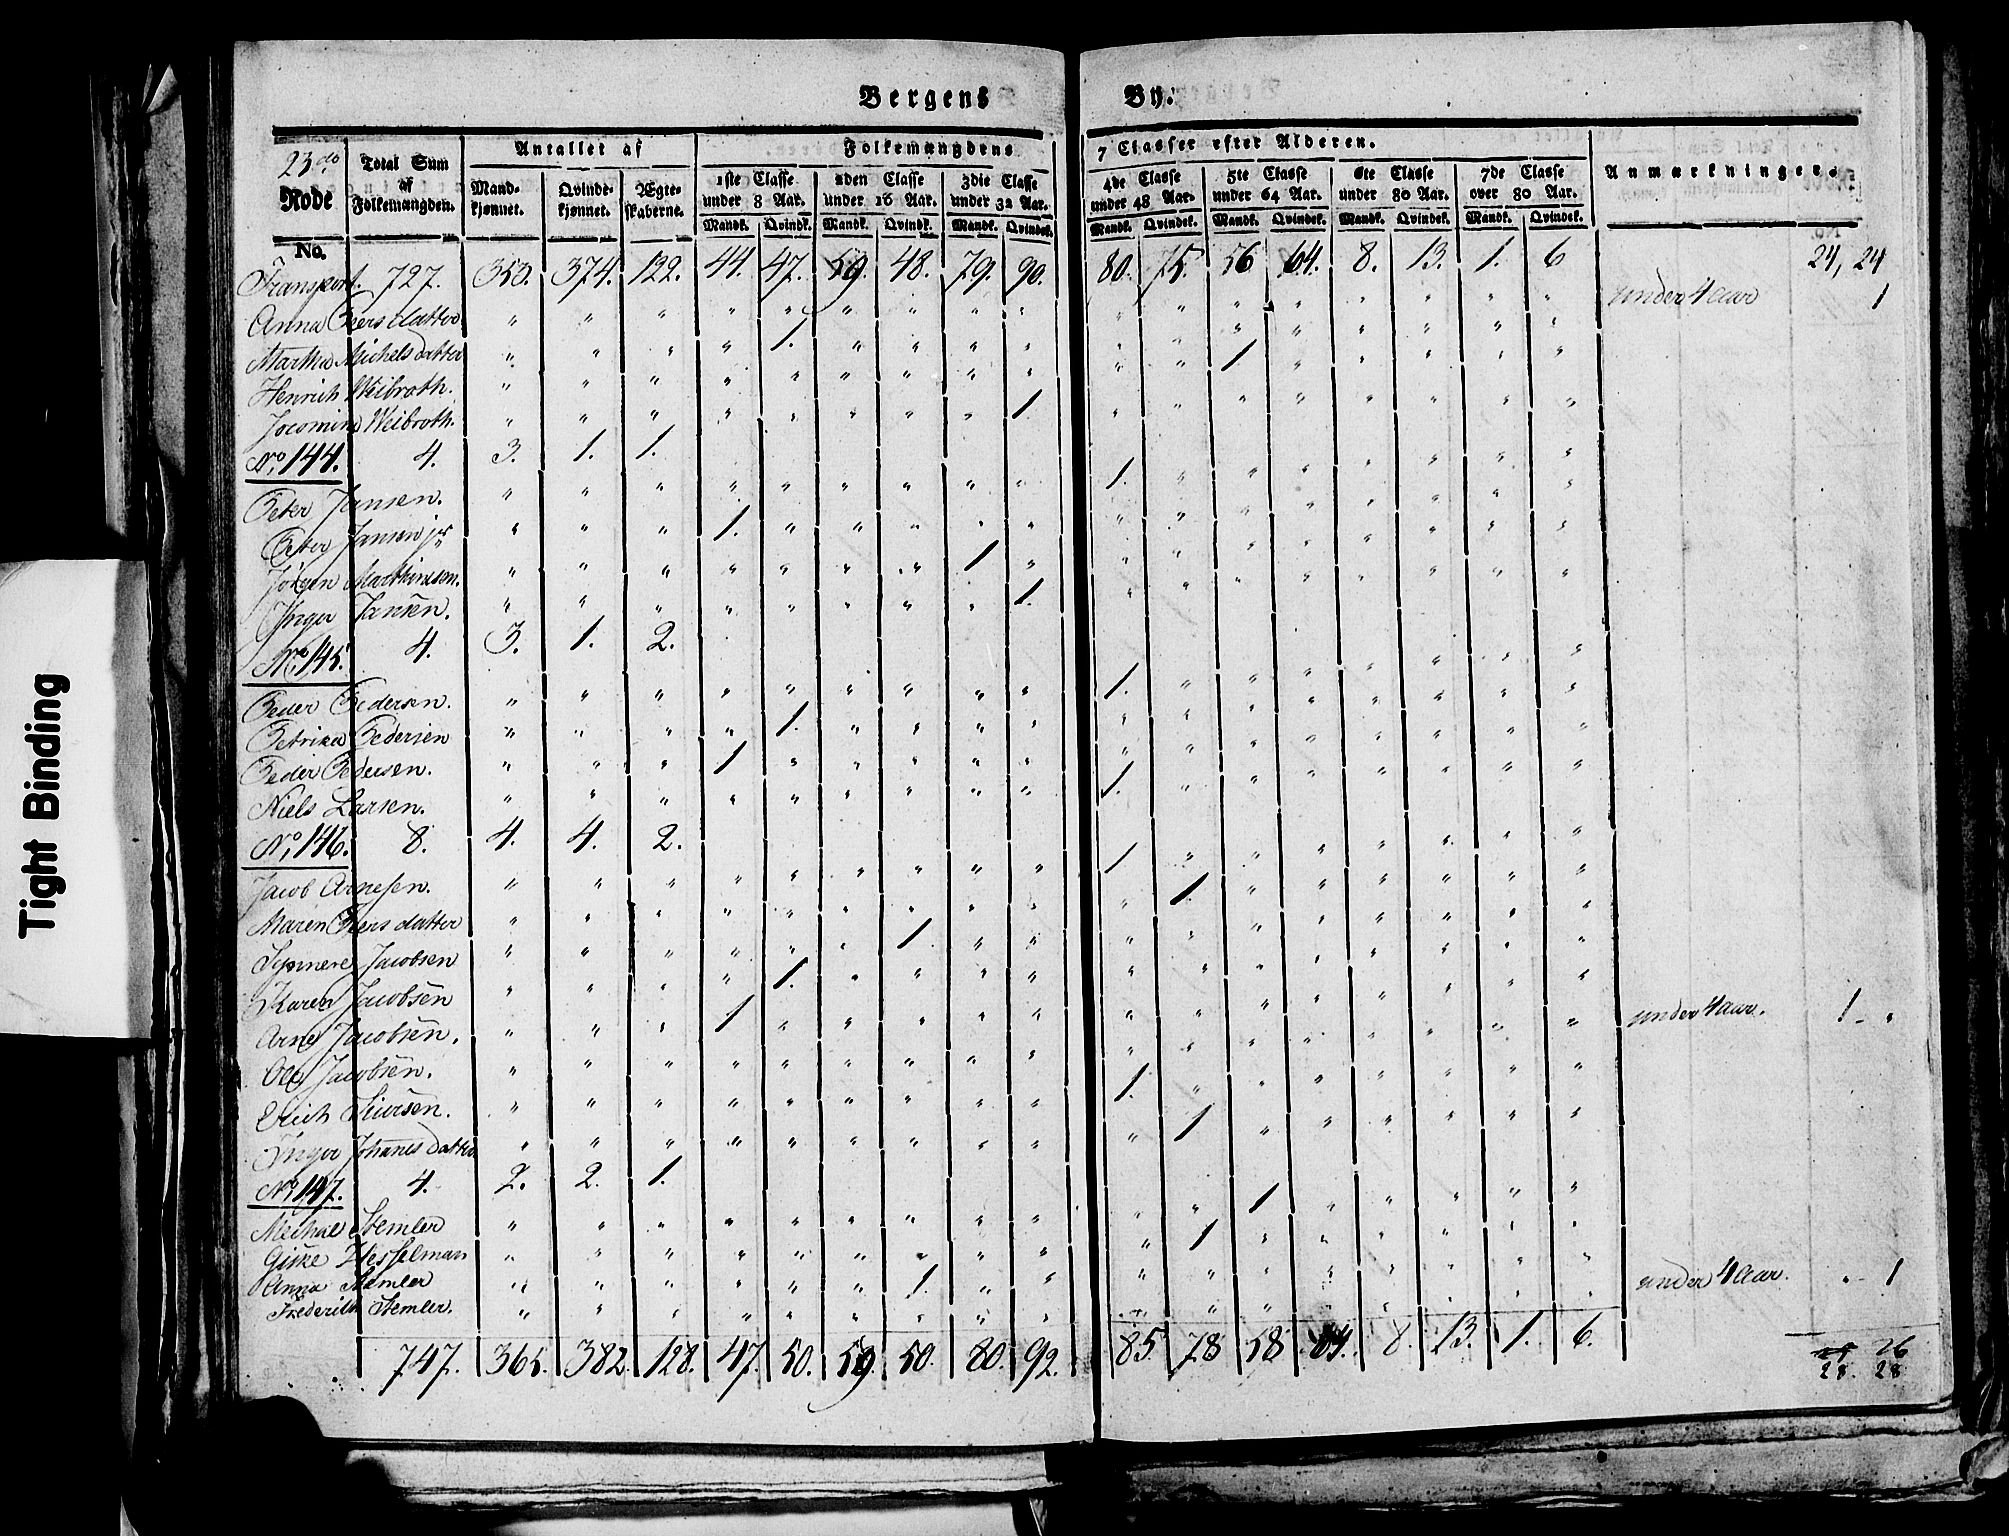 Tight Binding
Bergens By.
23do Rode No.
Total Sum af Folkemængden.
Antallet af
Mandkjønnet. Qvindekjønnet. Ægteskaberne.
Folkemængdens 7 Classer efter Alderen.
1ste Classe under 8 Aar. 2den Classe under 16 Aar. 3die Classe under 32 Aar. 4de Classe under 48 Aar. 5te Classe under 64 Aar. 6te Classe under 80 Aar. 7de Classe over 80 Aar.
Mandk. Qvindk. Mandk. Qvindk. Mandk. Qvindek. Mandk. Qvindek. Mandk. Qvindek. Mandk. Qvindek. Mandk. Qvindek.
Anmærkninger.
Transport. 727. 353. 374. 122. 44. 47. 59. 48. 79. 90. 80. 75. 56 64. 8. 13. 1. 6 24, 24
Anna Peersdatter " " " " " " " " " " " " " " " " " under 4 aar 1
Martha Michelsdatter " " " " 1. " " " " " " " " " " " "
Henrich Weibroth. " " " " " " " " " " " 1 " " " " "
Jocomina Weibroth. " " " " " " " " 1 " " " " " " " "
No. 144. 4. 3. 1. 1.
Peter Jansen. " " " " " " " " " 1. " " " " " " "
Peter Jansen jr " " " 1. " " " " " " " " " " " " "
Jørgen Marthinsen. " " " " " " " 1 " " " " " " " " "
Inger Jansen. " " " " " " " " 1. " " " " " " " "
No. 145. 4. 3. 1. 2.
Peder Pedersen. " " " " " " " " " 1. " " " " " " "
Petrika Pedersen " " " " 1. " " " " " " " " " " " "
Peder Pedersen. " " " 1 " " " " " " " " " " " " "
Niels Larsen. " " " " " " " " " 1. " " " " " " "
No. 146. 8. 4. 4. 2.
Jacob Arnesen. " " " " " " " " " 1 " " " " " " "
Maren Peersdatter " " " " " " " " " " 1 " " " " " "
Synneve Jacobsen " " " " " " 1 " " " " " " " " " "
Karen Jacobsen " " " " 1. " " " " " " " " " " " "
Arne Jacobsen. " " " 1 " " " " " " " " " " " " "
Ole Jacobsen. " " " " " " " " " " " " " " " " " under 4 aar. 1 - "
Erich Siursen. " " " " " " " " " 1. " " " " " " "
Inger Johannesdatter " " " " " " " " " " 1 " " " " " "
No. 147. 4. 2. 2. 1.
Michael Stemler " " " " " " " " " " " 1 " " " " "
Giske Hesselman " " " " " " " " " " 1 " " " " " "
Anna Stemler " " " " " " 1. " " " " " " " " " "
Frederich Stemler. " " " " " " " " " " " " " " " " " under 4 Aar. " - 1
747. 365. 382 128. 47. 50. 59. 50. 80. 92. 85. 78 58 64. 8. 13. 1. 6. 26
28. 28